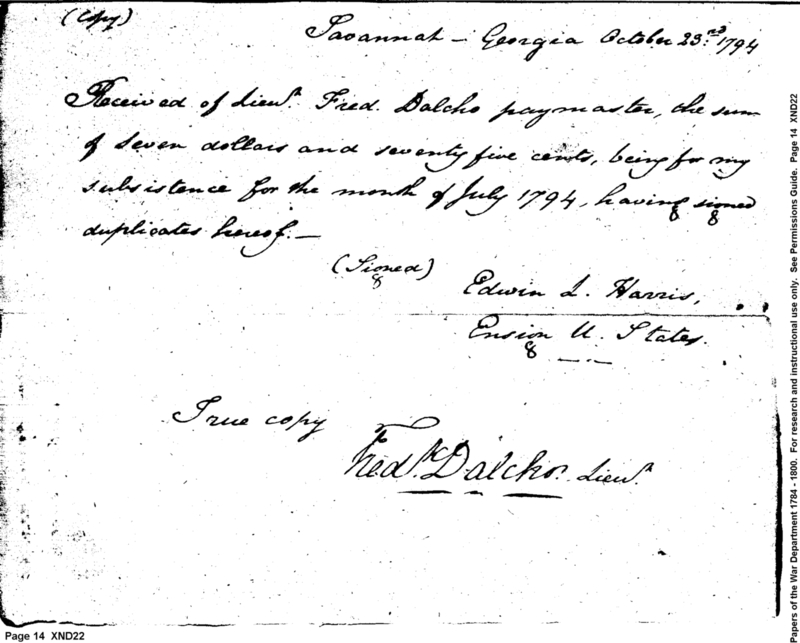 (Copy)
Savannah - Georgia October 23rd 1794
Received of Lieut. Fred. Dalcho paymaster, the sum
of seven dollars and seventy five cents, being for my
subsistence for the month of July 1794, having signed
duplicates hereof. -
(Signed)
Edwin L. Harris,
Ensign U. States.
True copy
Fredk. Dalcho. Lieut.
Page 14 XND22
Papers of the War Department 1784 - 1800. For research and instructional use only. See Permissions Guide. Page 14 XND22